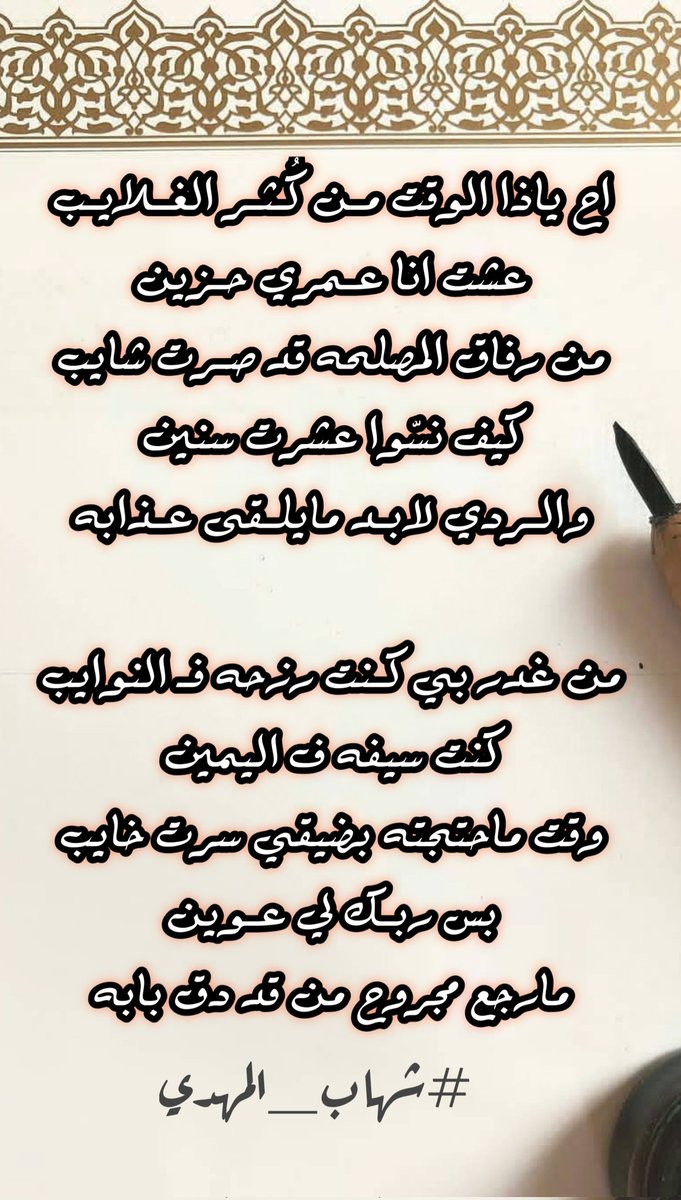 اح ياذا الوقت من كُثر الغلايب
عشت انا عمري حزين
من رفاق المصلحه قد صرت شايب
كيف نسّوا عشرت سنين
والردي لابد مايلقى عذابه
من غدر بي كنت رزحه ف النوايب
كنت سيفه ف اليمين
وقت ماحتجته بضيقي سرت خايب
بس ربك لي عوين
مارجع مجروح من قد دق بابه
#شهاب__المهدي